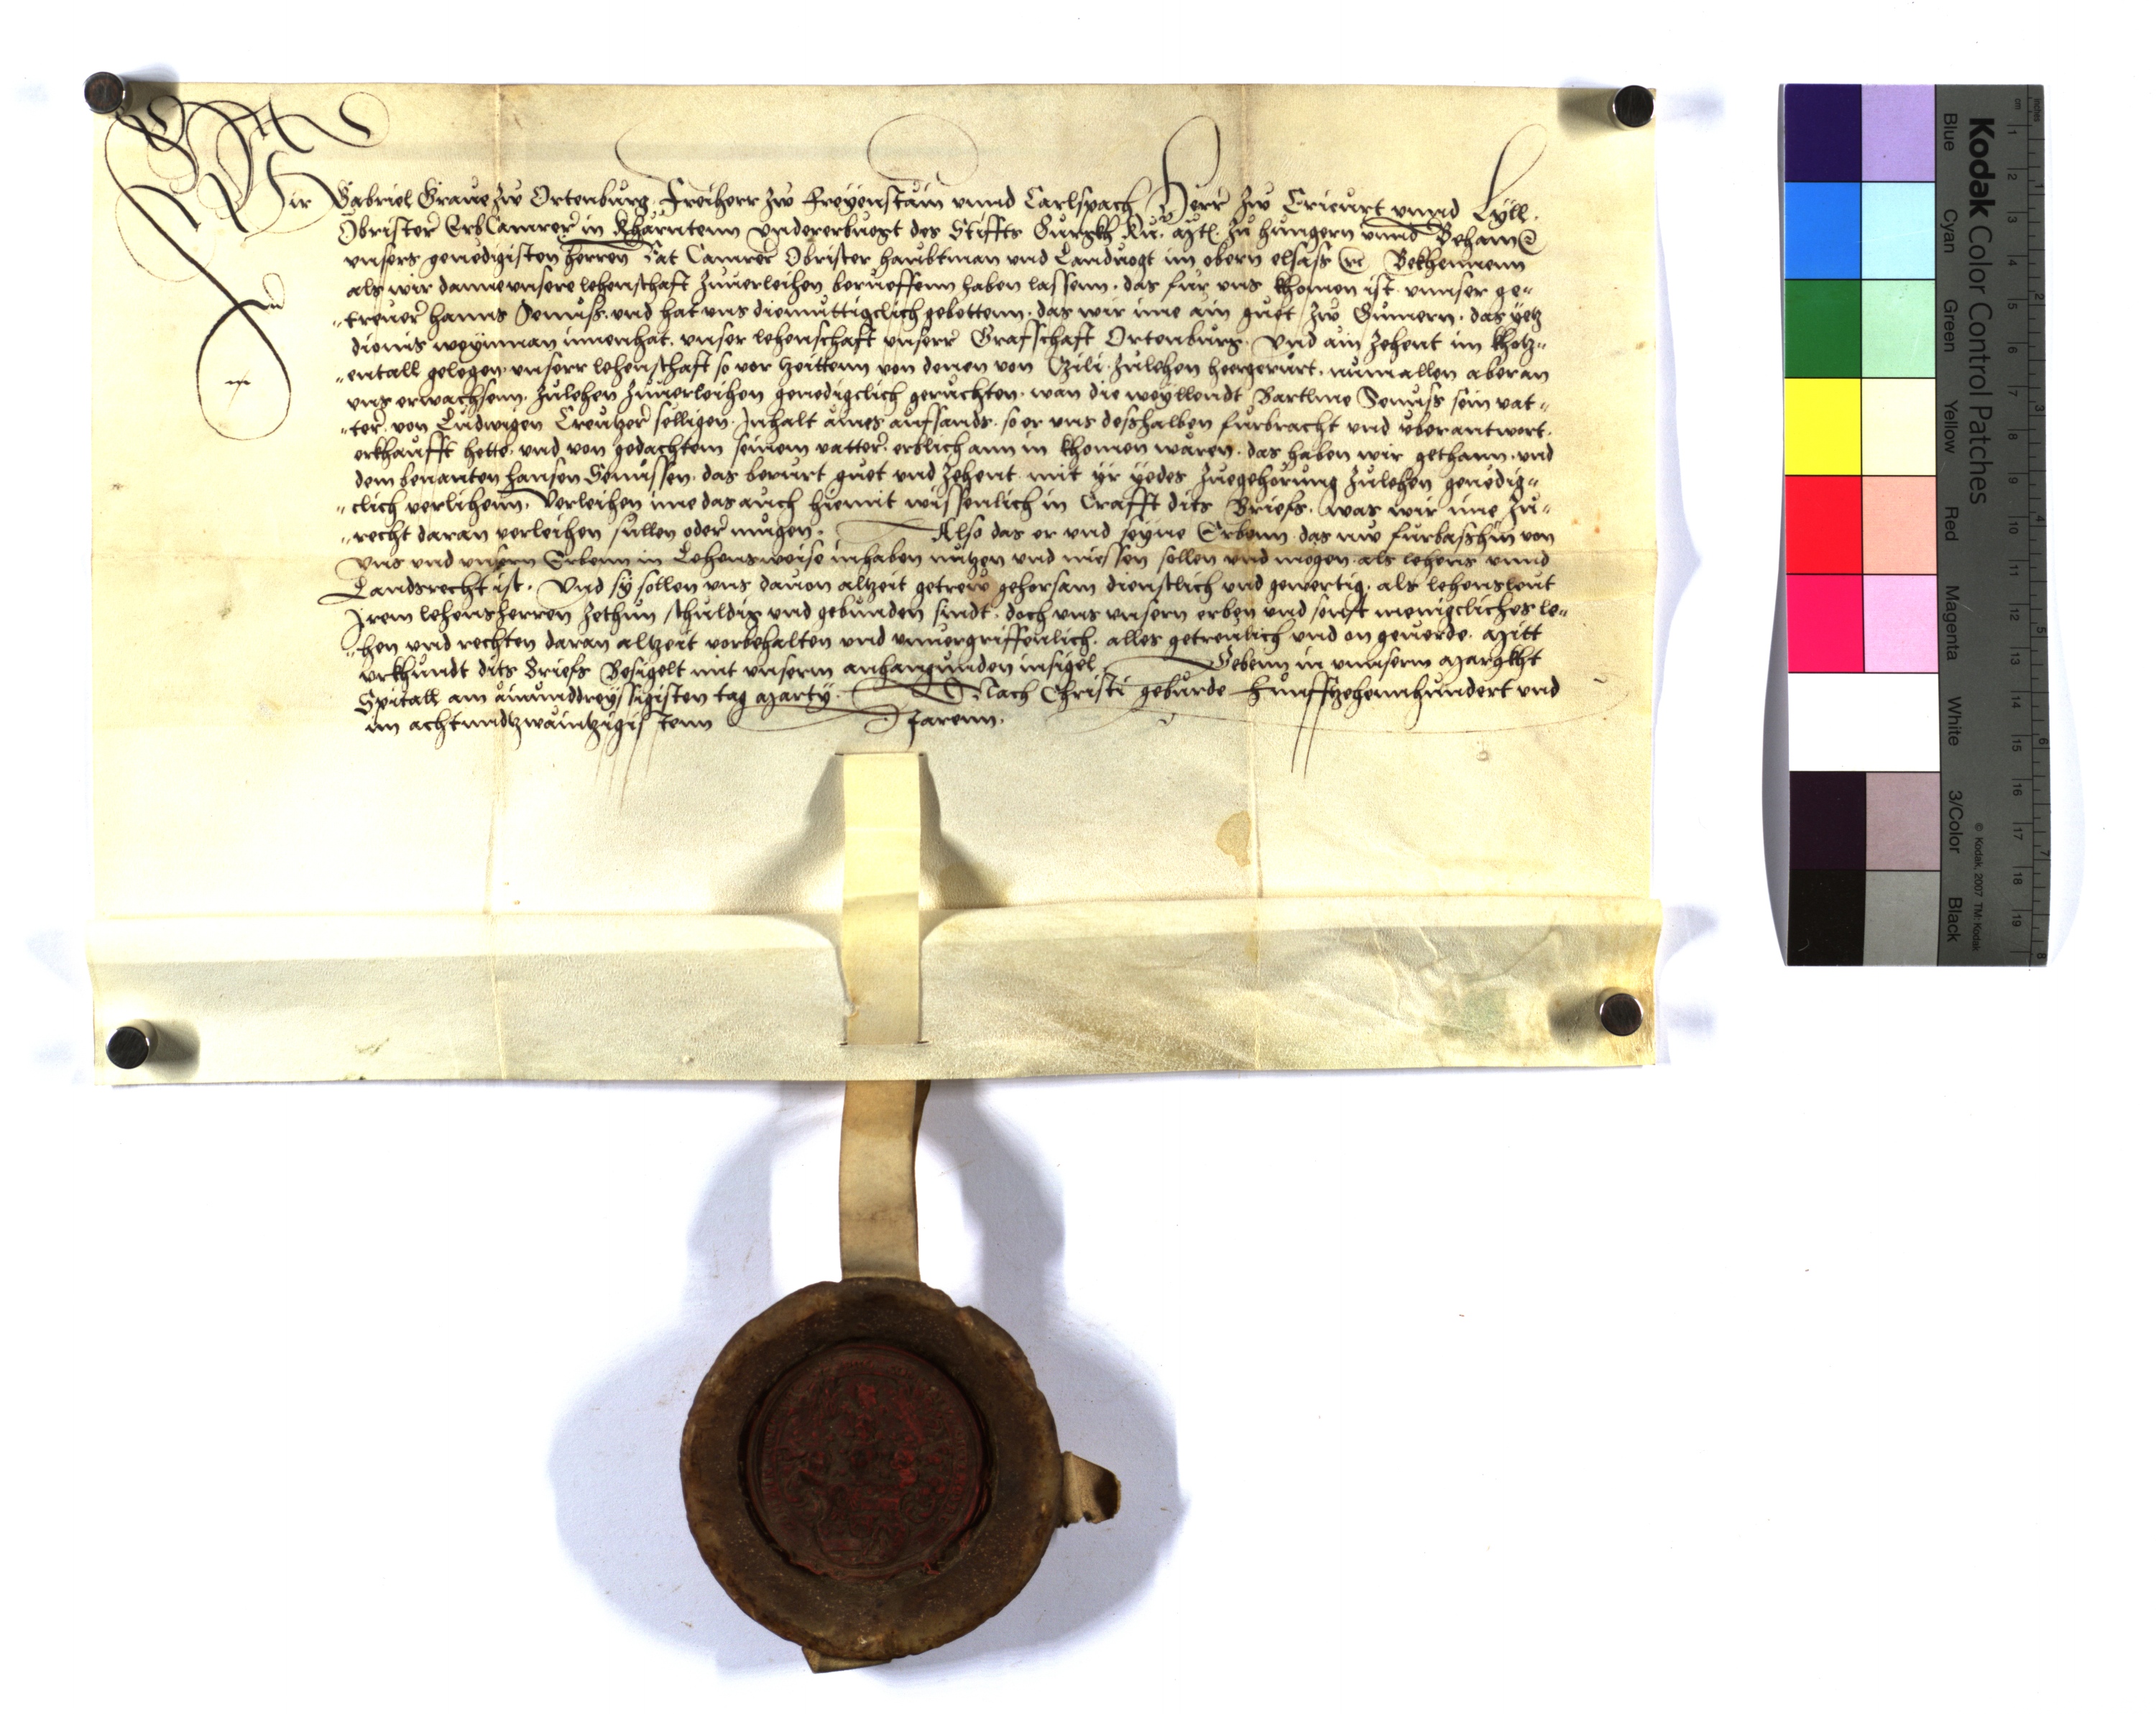 Wir Gabriel Graue zw Ortenburg Freiherr zw Freyenstain unnd Carlspach Herr zw Ericurt unnd Lyll.
Obrister ErbCamrer in Kharntenn Undererbuogt des Stiffts Gurgkh Ku. Mtl. zu hungern unnd Beham
unsers genedigisten herren Rat Camrer Obrister haubtman und Landuogt im obern elsass Bekhennenn
als wir danne unsere lehenschaft zuuerleihen berueffenn haben lassenn. das fur uns khomen ist unnser ge„
„treuer hanns und hat uns diemuttigclich gebettenn. das wir ime ain guet zw das yetz
dionis weynman innenhat. unser lehenschaft unserr Grafschaft Ortenburg. Und ain zehent im khotz„
„entall gelegen unserr lehenschaft so vor zeittenn von denen von Czili zulehen heergerurt. nunallen aber an
uns erwachsenn. zulehen zuuerleihen genedigclich geruchten. wan die weyllendt Bartlme sein vat„
„ter von Ludwigen Creutzer selligen. Inhalt aines aufsands. so er uns desshalben furbracht und uberantwort.
erkhaufft hette. und von gedachtem seinem vatter. erblich ann in khomen waren. das haben wir gethann. und
dem benanten hansen das berurt guet und zehent mit yr yedes zuegehorung zulehen genedig„
„clich verlihenn. Verleihen ime das auch hiemit wissenlich in Crafft dits Briefs. was wir ime zu„
„recht daran verleihen sullen oder mugen. Also das er und seyne Erbenn das nw furbasshin von
uns und unsern Erbenn in Lehensweise innhaben nutzen und niessen sollen und mogen als lehens unnd
Landsrecht ist. Und sy sollen uns dauon altzeit getrew gehorsam dienstlich und gewertig. als lehensleut
Irem lehensherren zethun schuldig und gebunden sindt. doch uns unsern erben und sonst menigcliches le„
„hen und rechten daran altzeit vorbehalten und unuergriffenlich. alles getreulich und on geuerde. Mitt
urkhundt dits Briefs Besigelt mit unserm anhangunden insigel. Gebenn in unnserm Margkht
Spitall am ainunddreyssigisten tag Marty. Nach Christi geburde Funffzehennhundert und
im achtundtzwaintzigistenn Jarenn.
Kodak Color Control Patches
© Kodak, 2007 TM: Kodak
Blue Cyan Green Yellow Red Magenta White 3/Color Black
cm 1 2 3 4 5 6 7 8 9 10 11 12 13 14 15 16 17 18 19
inches 1 2 3 4 5 6 7 8